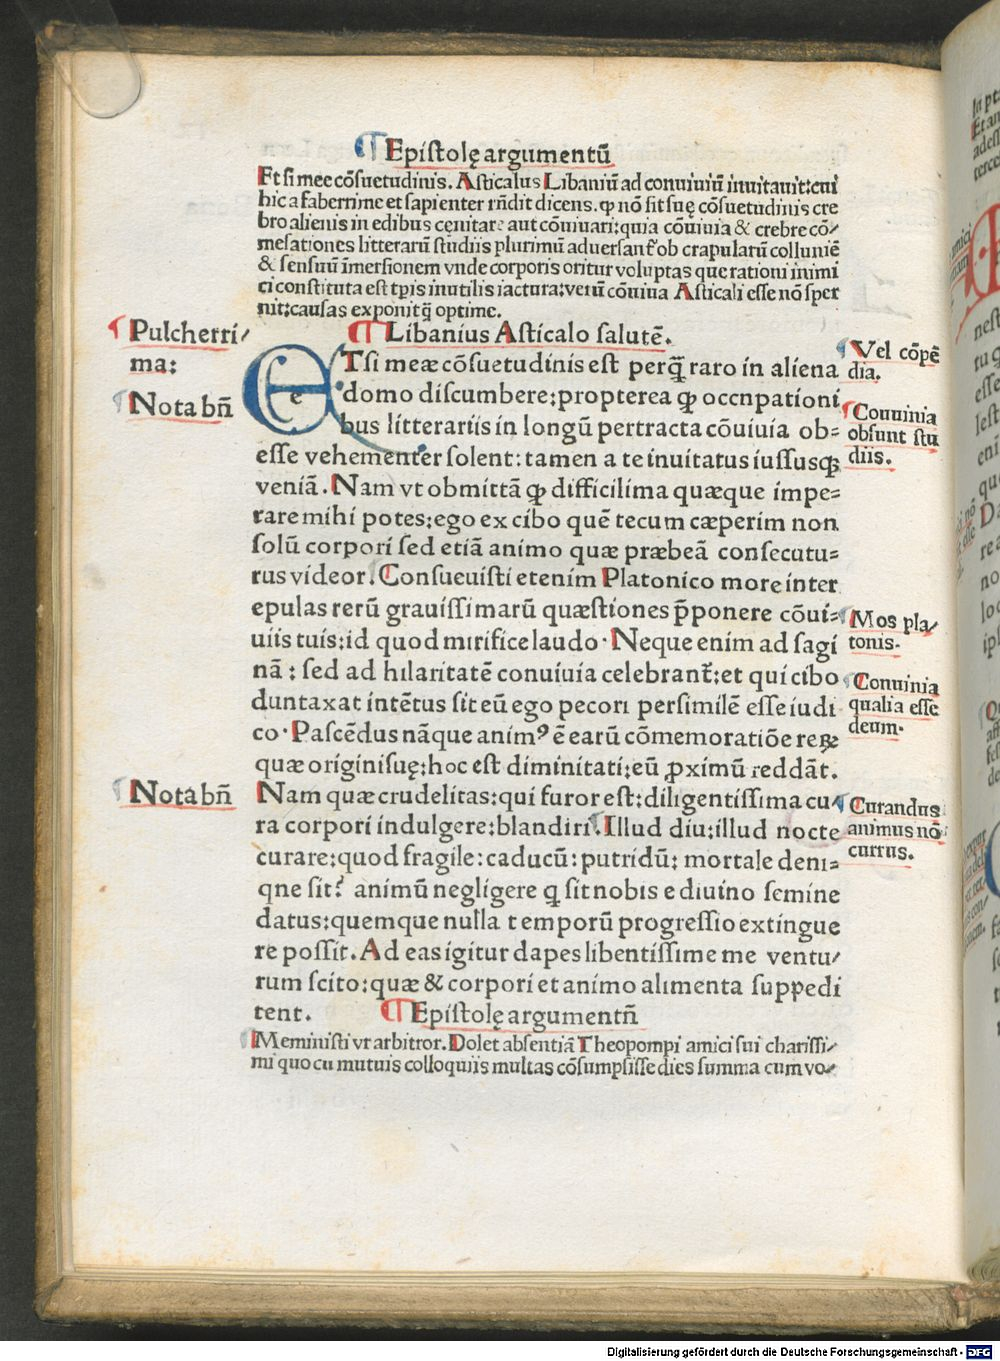 ¶Epistolę argumentū
Et si mee cōsuetudinis. Asticalus Libaniū ad conuiuiū inuitauit:cui
hic a faberrime et sapienter rn̄dit dicens. ꝙ nō sit suę cōsuetudinis cre
bro alienis in edibus cenitare aut cōuiuari:quia cōuiuia & crebre cō/
mesationes litterarū studiis plurimū aduersant᷑ ob crapularū colluuiē
& sensuū īmersionem vnde corporis oritur voluptas que rationi inimi
ci constituta est tp̄is inutilis iactura:verū cōuiua Asticali esse nō sper
nit:causas exponit ꝗ̄ optime.
¶ Libanius Asticalo salutē.
ETsi meæ cōsuetudinis est perꝗ̄ raro in aliena
domo discumbere:propterea ꝙ occnpationi
bus litterariis in longū pertracta cōuiuia ob=
esse vehementer solent: tamen a te inuitatus iussusqꝫ
veniā. Nam vt obmittā ꝙ difficilima quæque impe=
rare mihi potes:ego ex cibo quē tecum cæperim non
solū corpori sed etiā animo quæ præbeā consecutu=
rus videor. Consueuisti etenim Platonico more inter
epulas rerū grauissimarū quæstiones p̄ponere cōui=
uiis tuis:id quod mirifice laudo. Neque enim ad sagi
nā : sed ad hilaritatē conuiuia celebrant᷑:et qui cibo
duntaxat intētus sit eū ego pecori persimilē esse iudi
co. Pascēdus nāque animꝰ ē earū cōmemoratiōe reꝝ
quæ originisuę:hoc est diminitati:eū ꝓximū reddāt.
Nam quæ crudelitas:qui furor est:diligentissima cu
ra corpori indulgere:blandiri. Illud diu:illud nocte
curare:quod fragile:caducū:putridū: mortale deni=
qne sit? animū negligere q̨ sit nobis e diuino semine
datus:quemque nulla temporū progressio extingue
re possit. Ad eas igitur dapes libentissime me ventu/
rum scito:quæ & corpori et animo alimenta suppedi
tent. ¶Epistolę argumentn̄
Meministi vt arbitror. Dolet absentiā Theopompi amici sui charissi/
mi quo cu mutuis colloquiis multas cōsumpsisse dies summa cum vo/
¶ Pulcherri/
ma:
¶ Nota bn̄
¶ Nota bn̄
¶Vel cōpē
dia.
¶Conuinia
obsunt stu
diis.
¶Mos pla/
tonis.
¶Conuinia
qualia esse
deum.
¶Curandus
animus nō
currus.
Digitalisierung gefördert durch die Deutsche Forschungsgemeinschaft - DFG